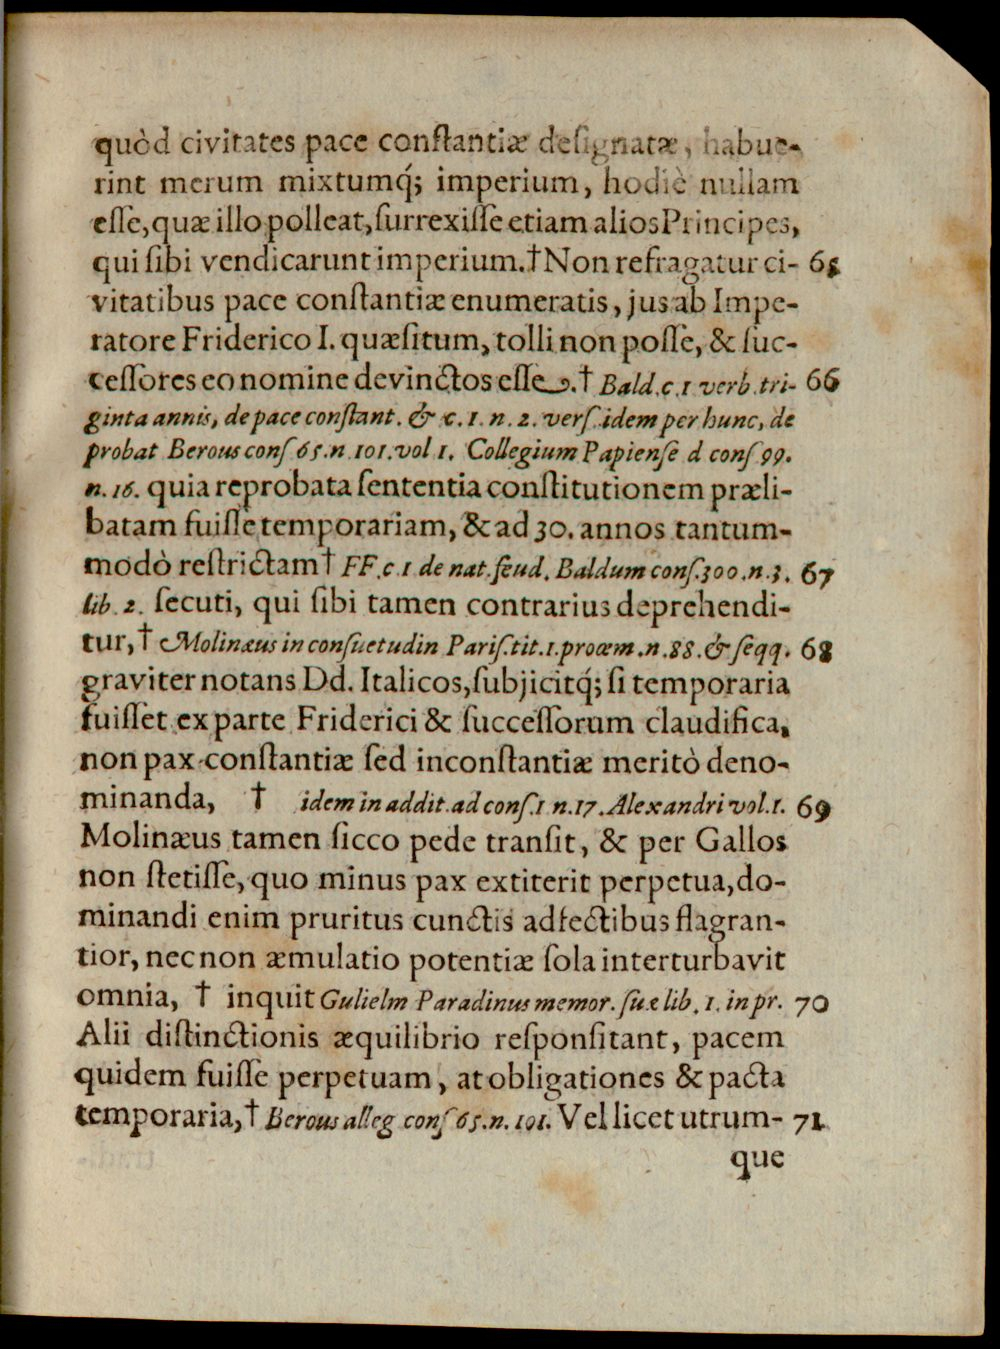 quòd civitates pace conſtantiæ deſignatæ, habue-
rint merum mixtumq́; imperium, hodiè nullam
eſſe, quæ illo polleat, ſurrexiſſe etiam alios Principes,
qui ſibi vendicarunt imperium. † Non refragatur ci- 65
vitatibus pace conſtantiæ enumeratis, jus ab Impe-
ratore Friderico I. quæſitum, tolli non poſſe, & ſuc-
ceſſores eo nomine devinctos eſſe. † Bald. c. 1 verb. tri- 66
ginta annis, de pace conſtant. & c. 1. n. 2. verſ. idem per hunc, de
probat Berous conſ 65. n. 101. vol 1. Collegium Papienſe d conſ 99.
n. 16. quia reprobata ſententia conſtitutionem præli-
batam fuiſſe temporariam, & ad 30. annos tantum-
modò reſtrictam † FF. c. 1 de nat. feud. Baldum conſ. 300. n. 3. 67
lib. 2. ſecuti, qui ſibi tamen contrarius deprehendi-
tur, † Molinæus in conſuetudin Pariſ. tit. 1. proœm. n. 88. & ſeqq. 68
graviter notans Dd. Italicos, ſubjicitq́; ſi temporaria
fuiſſet ex parte Friderici & ſucceſſorum claudifica,
non pax conſtantiæ ſed inconſtantiæ meritò deno-
minanda, † idem in addit. ad conſ. 1 n. 17. Alexandri vol. 1. 69
Molinæus tamen ſicco pede tranſit, & per Gallos
non ſtetiſſe, quo minus pax extiterit perpetua, do-
minandi enim pruritus cunctis adfectibus flagran-
tior, nec non æmulatio potentiæ ſola interturbavit
omnia, † inquit Gulielm Paradinus memor. ſuæ lib. 1. in pr. 70
Alii diſtinctionis æquilibrio reſponſitant, pacem
quidem fuiſſe perpetuam, at obligationes & pacta
temporaria, † Berous alleg conſ 65. n. 101. Vel licet utrum- 71
que